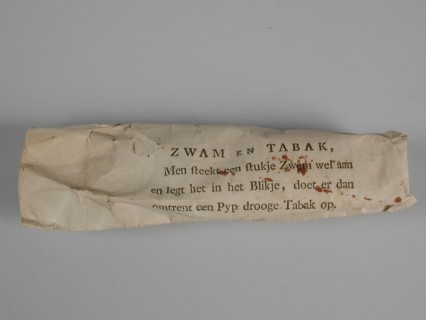 ZWAM EN TABAK,
Men steekt een stukje Zwam wel aan
en legt het in het Blikje, doet er dan
omtrent een Pyp drooge Tabak op.